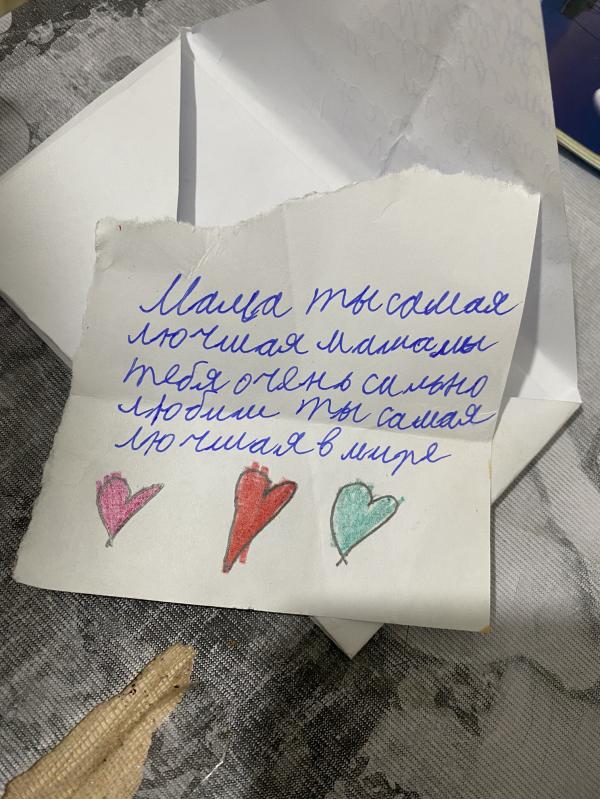 Мама ты самая
лючшая мамамы
тебя очень сильно
любим ты самая
лючшая в мире